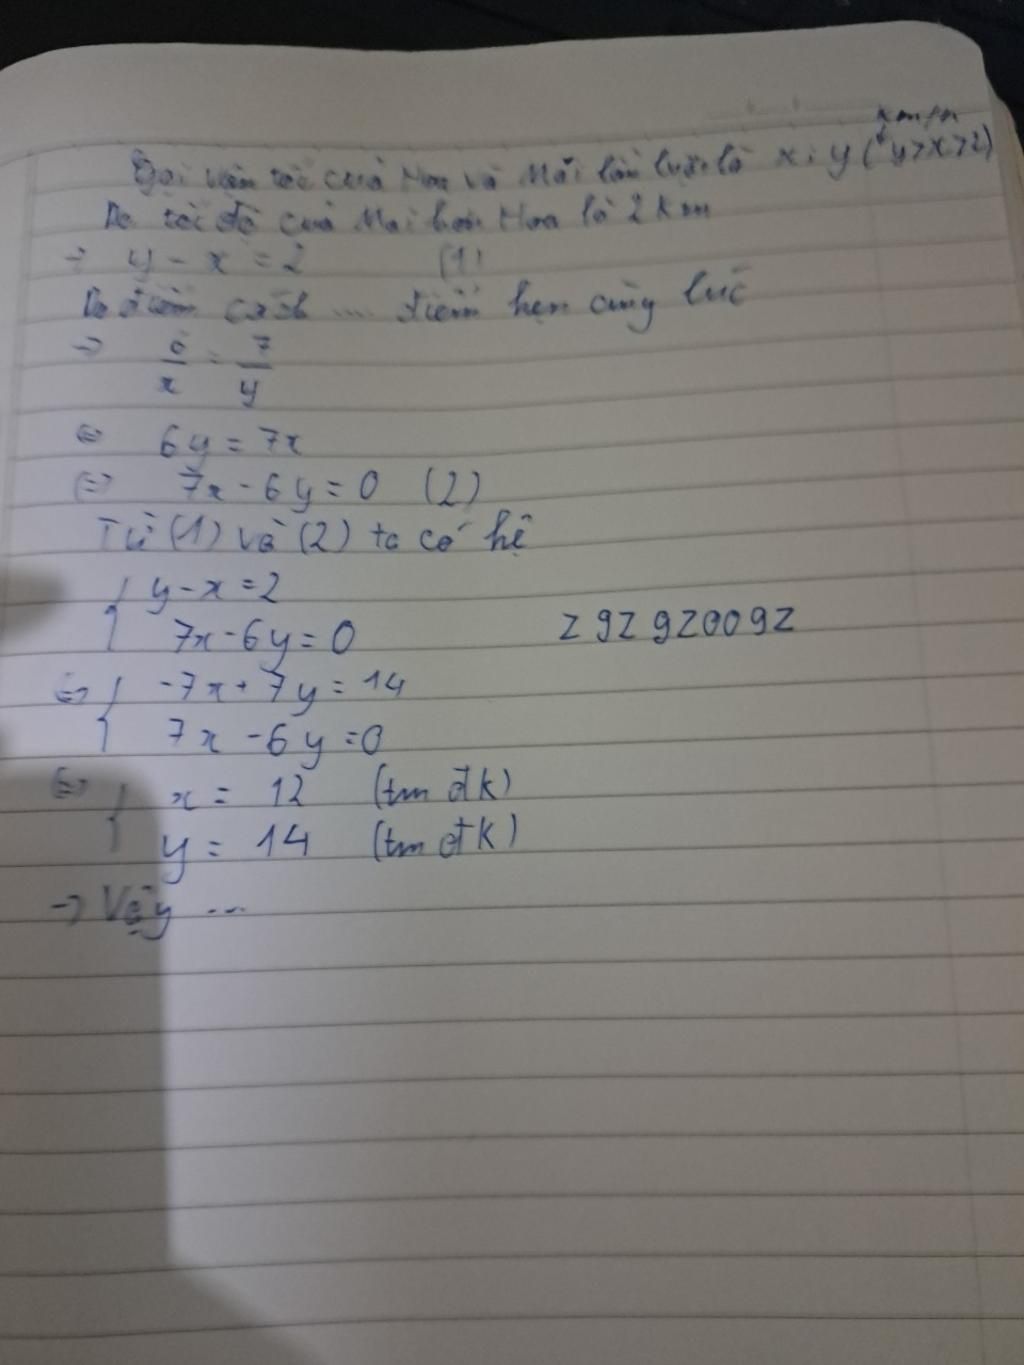 km/h
Gọi vận tốc của Hoa và Mai lần lượt là x; y (y>x>2)
Do tốc độ của Mai hơn Hoa là 2 km
→ y - x = 2 (1)
Do điểm cách .... điểm hẹn cùng lúc
→ 6/x = 7/y
⇔ 6y = 7x
⇔ 7x - 6y = 0 (2)
Từ (1) và (2) ta có hệ
{ y - x = 2
7x - 6y = 0
z9z9z009z
⇔ { -7x + 7y = 14
7x - 6y = 0
⇔ { x = 12 (tm đk)
y = 14 (tm đk)
→ Vậy ...